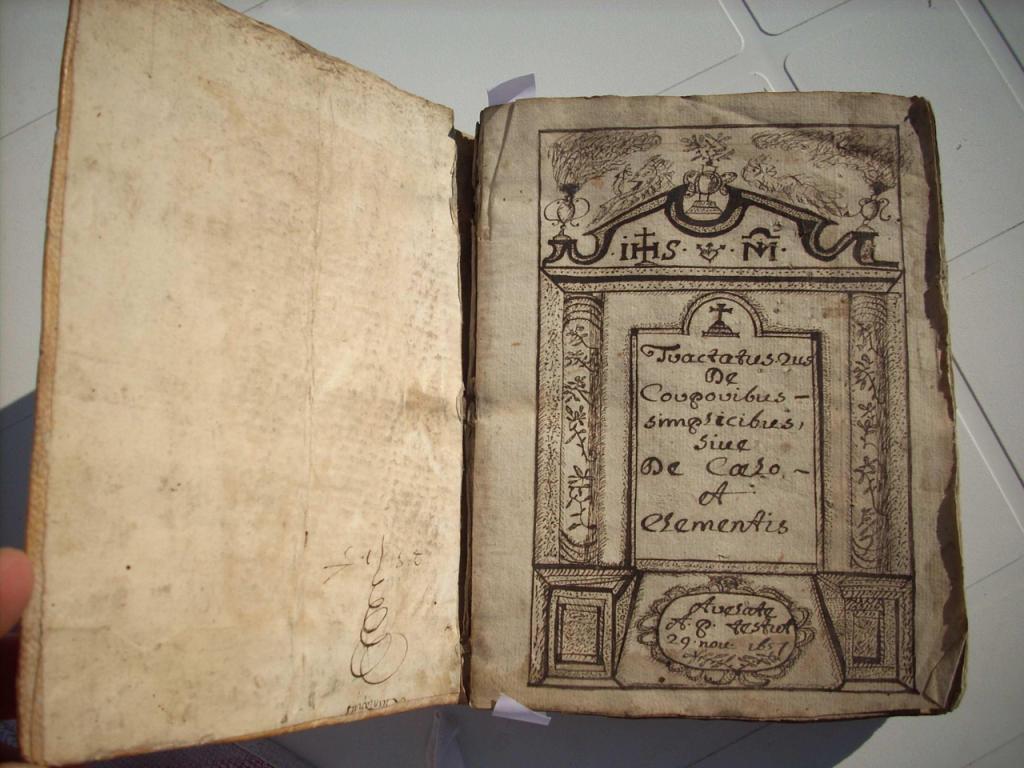 IHS M
Tractatus Qus
De
Corporibus –
simplicibus,
siue
De Cœlo, –
Et
Elementis
A. P.
29 nou. 1657